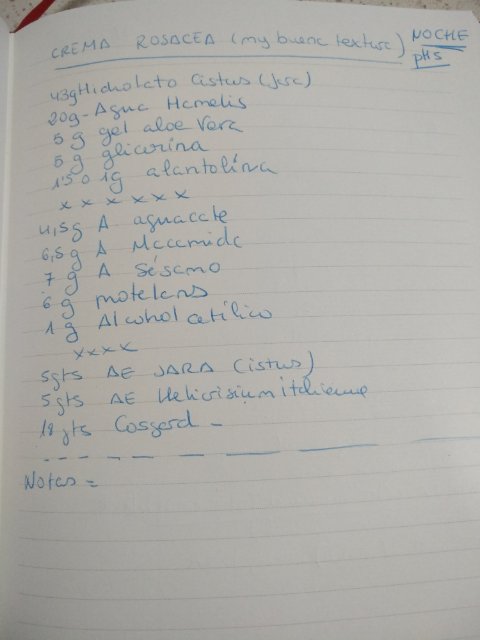 CREMA ROSACEA (my buena textura) NOCHE
pH5
43g Hidrolato Cistus (jara)
20g - Agua Hamelis
5 g gel aloe Vera
5 g glicerina
1'5 o 1g alantoína
x x x x x x
4,5g A aguacate
6,5g A Macamida
7 g A Sésamo
6 g motelans
1 g Alcohol cetílico
xxxx
5gts AE JARA (Cistus)
5gts AE Helicrisium
18 gts Cosgard -
Notas =